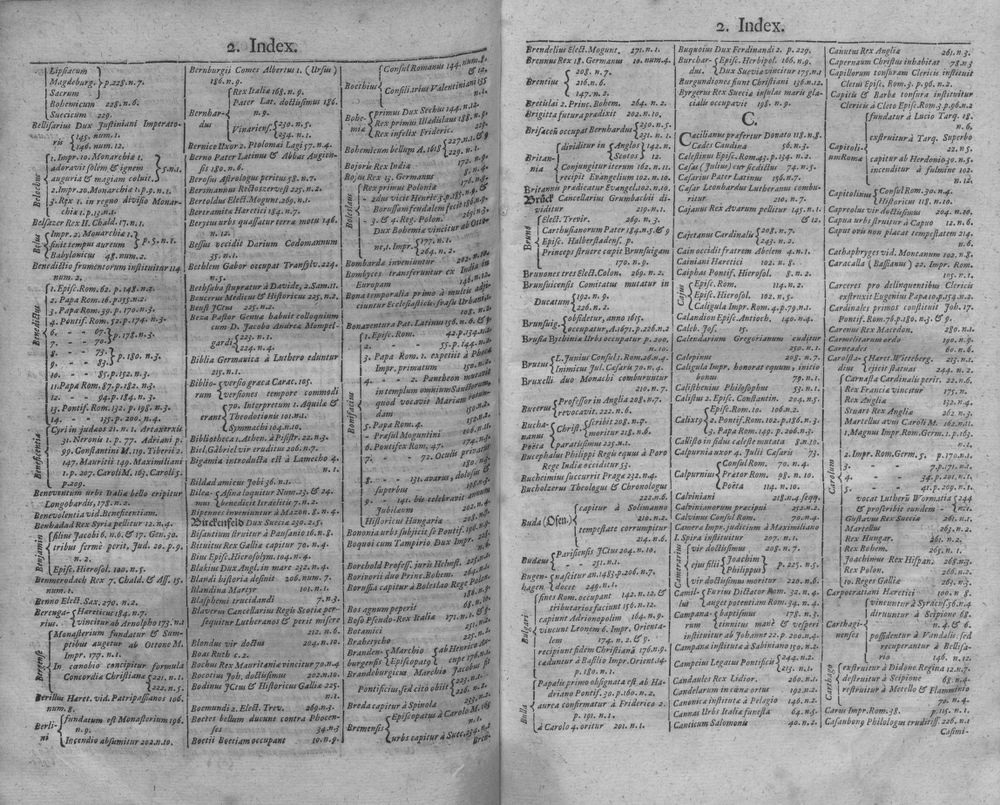 2. Index.
Lipsiacum
Magdeburg. p.228. n.7.
Sacrum
Bohemicum 228. n.6.
Suecicum 229.
Bellisarius Dux Justiniani Imperato-
ris 145. num. 12.
146. n. 12.
Belochus
1. Impr. 10. Monarchia 1.
adoravit solem & ignem 5. n.1.
auguria & magiam coluit.
2. Impr. 20. Monarchia 1. p.9. n.1.
3. Rex 1. in regno diviso Monar-
chia 1. p.13. n.1.
Belsazer Rex H. Chald. 17. n.1.
Belus
Impr. 2. Monarchia 1.
finit tempus aureum p.5. n.1.
Babylonicus 48. num. 2.
Benedictio frumentorum instituitur 114
num. 2.
Benedictus
1. Episc. Rom. 62. p.148. n.2.
2. Papa Rom. 16. p.155. n.2.
3. Papa Rom. 39. p.170. n.3.
4. Pontif. Rom. 52. p.174. n.3.
5. - - 67.
6. - - 69. p.178. n.3.
7. - - 70.
8. - - 73.
9. - - 83. p.180. n.3.
10. - - 85. p.152. n.3.
11. Papa Rom. 87. p.182. n.3.
12. - - 94. p.184. n.3.
13. Pontif. Rom. 132. p.198. n.3.
14. - - 135. p.200. n.4.
Beneficentia
Cyri in judæos 21. n.1. Artaxerxis
31. Neronis 1. p.77. Adriani p.
99. Constantini M. 119. Tiberii 2.
147. Mauritii 149. Maximiliani
1. p.207. Caroli M. 163. Caroli 5.
p.209.
Beneventum urbs Italiæ bello eripitur
Longobardis, 178. n.2.
Benevolentia vid. Beneficentiam.
Benhadad Rex Syriæ pellitur 12. n.4.
Benjamin
filius Jacobi 6. n.6. & 17. Gen. 30.
tribus ferme perit, Jud. 20. p.9.
n.2.
Episc. Hierosol. 100. n.5.
Benmerodach Rex 7. Chald. & Ass. 15.
num. 1.
Benno Elect. Sax. 270. n.2.
Berenga-
rius. Hæreticus 184. n.7.
vincitur ab Arnolpho 173. n.1
Bergense
Monasterium fundatur & Sum-
ptibus augetur ab Ottono M.
Impr. 177. n.1.
In canobio concipitur formula
Concordiæ Christianæ 221. n.1.
222. n.5.
Berillus Hæret. vid. Patripassianos 106.
num. 8.
Berli-
ni fundatum est Monasterium 196.
n.9.
Incendio absumitur 202. n.10.
Bernburgii Comes Albertus 1. (Ursus)
186. n.9.
Bernhar-
dus Rex Italiæ 168. n.9.
Pater Lat. doctissimus 186.
n.9.
Vinariens. 230. n.5.
234. n.1.
Bernice Uxor 2. Ptolomæi Lagi 57. n.4.
Berno Pater Latinus & Abbas Augien-
sis 180. n.8.
Berosus Astrologus peritus 58. n.7.
Bersmannus Restoszervest 225. n.2.
Bertoldus Elect. Mogunt. 269. n.1.
Bertramita Hæretici 184. n.7.
Berytus urbs quassatur terræ motu 146.
n.12.
Bessus occidit Darium Codomannum
35. n.1.
Bethlem Gabor occupat Transylv. 224.
Bethseba stupratur à Davide, 2. Sam. 11.
Beucerus Medicus & Historicus 225. n.2.
Beust JCtus 225. n.2.
Beza Pastor Genevæ habuit colloquium
cum D. Jacobo Andrea Mompel-
gardi 223. n.1.
224. n.4.
Biblia Germanica à Luthero eduntur
215. n.1.
Biblio-
rum versio græca Carac. 105.
versiones tempore commodi
erant 70. Interpretum 1. Aquilæ &
Theodotionis 101. n.1.
Symmachi 104. n.10.
Bibliotheca 1. Athen. à Pisistr. 22. n.3.
Biel, Gabriel vir eruditus 206. n.7.
Bigamia introducta est à Lamecho 4.
n.1.
Bildad amicus Jobi 36. n.1.
Bilea- Asina loquitur Num. 23. & 24.
mi benedicit Israelitis 7. n.2.
Bipennes inveniuntur à Mazon 8. n.4.
Birckenfeld Dux Sueciæ 230. 2.5.
Bisantium struitur à Pausania 16. n.8.
Bituitus Rex Galliæ capitur 70. n.4.
Bius Episc. Hierosolym. 104. n.4.
Blakius Dux Angl. in mare 232. n.4.
Blandi historia desinit 206. num. 7.
Blandina Martyr 101. n.1.
Blasphemi trucidandi 7. n.3.
Blaverus Cancellarius Regis Scotiæ per-
sequitur Lutheranos & perit misere
212. n.6.
Blondus vir doctus 204. n.10.
Boas Ruth 10. n.2.
Bochus Rex Mauritaniæ vincitur 70. n.4
Bocatius Joh. doctissimus 202. n.10.
Bodinus JCtus & Historicus Galliæ 225.
n.1.
Boemundi 2. Elect. Trev. 269. n.3.
Bæotes bellum ducunt contra Phocen-
ses 34. n.3
Boetii Bæotiam occupant 10. n.9.
Boethius Consul Romanus 144. num. 8.
Consiliarius Valentiniani 155
n.1.
Bohe-
miæ primus Dux Szechus 144. n.12.
Rex primus Uladislaus 188. n.9.
Rex infelix Frideric. 229.
Bohemicum bellum A. 1618 227. n.1.
229. n.1.
Bojoris Rex Indiæ 172. n.9.
Bojus Rex 13. Germanus 8. n.
Boleslaus
Rex primus Poloniæ 176. n.
2. dus vicit Heinr. 5. p.185. n.
Borussium feudalem fecit 186. n.
3. & 4. Reg. Polon. 263. n.
Dux Bohemiæ vincitur ab Otto
ne, 1. Impr. 177. n.1.
264. n.2.
Bombardæ inveniuntur 202. n.10.
Bombyces transferuntur ex India in
Europam 146. n.
Bona temporalia primo à multis adji-
ciuntur Ecclesiasticis suasu Urbani
108. n.
Bonaventura Pat. Latinus 156. n.6. &
Bonifacius
1. Episc. Rom. 42. p.134. n.2.
2. - - 55. p.144. n.2.
3. Papa Rom. 1. expetiit à Phoca
Impr. primatum 150. n.2.
4. - - 2. Pantheon mutavit
intemplum omnium Sanctorum,
quod vocavit Mariam rotun-
dam 150. n.
5. Papa Rom. 4. 152. n.
- Præsul Moguntini 174. n.
6. Pontifex Rom. 47. 173. n.
7. - - 72. Oculis privatur
177. n.
8. - - 131. avarus, dolosus &
superbus 198. n.
9. - 141. bis celebravit annum
Jubilæum 202. n.
Historicus Hungariæ 208. n.
Bononia urbs subjicit se Pontif. 196. n.
Boquoi cum Tampirio Dux Impr. 228.
n.
Borchold Profess. juris Helmst. 225. n.
Borivorii duo Princ. Bohem. 264. n.
Borussia capitur à Boleslao Rege Polon.
n.
Bos agnum peperit 68. n.
Boso Pseudo-Rex Italiæ 271. n.1.
Botamici n.
Brabetycho 225. n.
Branden-
burgensis Marchio ab Henrico Au-
Episcopat9 cupe 176. n.1.
Brandeburgicus Marchio Jacobus fit
Pontificius, sed cito obiit 225. n.
226. n.1.
Breda capitur à Spinola 229.
Bremensis Episcopatus à Carolo M. 168
n.
urbs capitur à Suec. 234. n.2
Bren-
2. Index.
Brendelius Elect. Mogunt. 271. n.1.
Brennus Rex 18. Germanus 10. num. 4.
Brentius 208. n.7.
216. n.6.
Bretislai 2. Princ. Bohem. 264. n.2.
Brigitta futura prædixit 202. n.10.
Brisacen occupat Bernhardus 230. n.5.
231. n.1.
Britan-
nia dividitur in Anglos 142. n.
Scotos 12.
Conjungitur iterum 162. n.11.
recipit Evangelium 102. n.10.
Britannis prædicatur Evangel. 102. n.10.
Brück Cancellarius Grumbachii di-
viditur 219. n.1.
Bruno
Elect. Trevir. 269. n.3.
Carthusianorum Pater 184. n.5. & 9
Episc. Halberstadens. p.
Princeps struere cupit Brunsuigam
170. n.9.
Brunones tres Elect. Colon. 269. n.2.
Brunsuicensis Comitatus mutatur in
Ducatum 192. n.9.
266. n.2.
Brunsuig. obsidetur, anno 1615.
occupatur, A. 1671. p.226. n.2
Brusia Bythiniæ Urbs occupatur p.200.
n.10.
Brutus L. Junius Consul 1. Rom. 26. n.4.
Inimicus Jul. Cæsaris 70. n.4.
Bruxelli duo Monachi comburuntur
210. n.7.
Bucerus Professor in Anglia 208. n.7.
revocavit. 222. n.6.
Bucha-
nanni
poeta Christ. Scribit 208. n.7.
moritur 218. n.6.
paratissimus 225. n.1.
Bucephalus Philippi Regis equus à Poro
Rege Indiæ occiditur 53.
Bucheimius succurrit Pragæ 232. n.4.
Bucholzerus Theologus & Chronologus
222. n.6.
Buda (Ofen.) capitur à Solimanno
210. n.2.
tempestate corrumpitur
214. n.6.
Budæus Parisiensis JCtus 204. n.10.
Bugen-
hagen. nascitur an. 1485. p.206. n.7.
docet 249. n.1.
Bulgari
fines Rom. occupant 142. n.12. &
tributarios faciunt 156. n.12.
capiunt Adrionopolim 164. n.9.
vincunt Leonem 6. Impr. Orienta-
lem 174. n.2. & 9.
recipiunt fidem Christianam 176. n.9.
cæduntur à Basilio Impr. Orient. 14.
180. n.1.
Bulla
Papalis primo obsignata est ab Ha-
driano Pontif. 30. p.160. n.2.
aurea confirmatur à Friderico 2.
p.191. n.1.
à Carolo 4. oritur 201. n.1.
Buquoius Dux Ferdinandi 2. p.229.
Burchar-
dus. Episc. Herbipol. 166. n.9.
Dux Sueviæ vincitur 175. n.1
Burgundiones fiunt Christiani 126. n.12.
Byrgerus Rex Sueciæ insulas maris gla-
cialis occupavit 198. n.9.
C.
Cæcilianus præfertur Donato 118. n.8.
Cædes Candina 56. n.3.
Cælestinus Episc. Rom. 43. p.134. n.2.
Cæsar (Julius) cur sic dictus 74. n.5.
Cæsarius Pater Latinus 156. n.7.
Cæsar Leonhardus Lutheranus combu-
ritur 210. n.2.
Cajanus Rex Avarum pellitur 145. n.1.
Cajetanus Cardinalis 208. n.7.
243. n.2.
Cain occidit fratrem 2. n.1.
Cainiani Hæretici 102. n.8.
Caiphas Pontif. Hierosol. 8. n.2.
Cajus
Episc. Rom. 114. n.2.
Episc. Hierosol. 102. n.5.
Caligula Impr. Rom. 4. p.79. n.1.
Calandion Episc. Antioch. 140. n.4.
Caleb. Jos. 15.
Calendarium Gregorianum editur
250. n.1.
Calepinus 208. n.7.
Caligula Impr. honorat equum, initio
bonus 79. n.1.
Calisthenius Philosophus 53. n.1.
Calistus 2. Episc. Constantin. 204. n.5.
Episc. Rom. 10. 106. n.2.
Calixt9 2. Pontif. Rom. 102. p.186. n.3.
3. Papa Rom. 149. p.206. n.3.
Callisto in sidus cæleste mutata 8. n.10.
Calpurnia uxor 4. Julii Cæsaris 73.
Calpurnius
Consul Rom. 70. n.4.
Prætor Rom. 98. n.10.
Poeta 114. n.10.
Calviniani 218. n.4. seqq.
Calvinianorum præcipui 252. n.2.
Calvinus Consul Rom. 70. n.4.
Cameræ Impr. judicium à Maximiliano
I. Spiræ instituitur 207. n.1.
Camerarius
vir doctissimus 208. n.7.
ejus filii Joachim p.225. n.5.
Philippus
vir doctissimus moritur 220. n.6.
Camil-
lus Furius Dictator Rom. 32. n.4.
auget potentiam Rom. 34. n.4.
Campana-
rum baptismus 178. n.3.
tinnitus mane & vesperi
instituitur ab Johanne 22. p.200. n.4.
Campana instituta à Sabiniano 150. n.2.
Campcius Legatus Pontificis 244. n.2.
245. n.1.
Candaules Rex Lidior. 260. n.1.
Candelarum in cæna ortus 192. n.2.
Canonica instituta à Pelagio 146. n.2.
Cannus Urbs Italiæ funesta 64. n.5.
Canticum Salomonis 40. n.2.
Canutus Rex Angliæ 261. n.3.
Capernaum Christus inhabitat 78. n.3
Capillorum tonsuram Clericis instituit
Cletus Episc. Rom. 3. p.96. n.2
Capitis & Barbæ tonsura instituitur
Clericis à Cleto Episc. Rom. 3. p.96. n.2
Capitoli-
um Romæ
fundatur à Lucio Tarq. 18.
n.6.
exstruitur à Tarq. Superbo
22. n.4.
capitur ab Herdonio 30. n.5.
incenditur à fulmine 102.
n.12.
Capitolinus Consul Rom. 30. n.4.
Historicus 118. n.10.
Capreolus vir doctissimus 204. n.10.
Capua urbs struitur à Capno 12. n.6.
Caput ovis non placat tempestatem 214.
n.6.
Cathaphryges vid. Montanum 102. n.8.
Caracalla (Bassianus) 22. Impr. Rom.
105. n.1.
Carceres pro delinquentibus Clericis
exstruxit Eugenius Papa 10. p.154. n.2.
Cardinales primos constituit Joh. 17.
Pontif. Rom. 76. p.180. n.3. & 9.
Carenus Rex Macedon. 280. n.1.
Carmelitarum ordo 190. n.9.
Carneades 60. n.6.
Carolsta-
dius Hæret. Witteberg. 213. n.1.
ejicit statuas 244. n.2.
Carolus
Carnassa Cardinalis perit. 22. n.6.
Rex Franciæ vincitur 175. n.1.
Rex Angliæ 132. n.4.
Stuars Rex Angliæ 262. n.3.
Martellus avus Caroli M. 162. n.11.
1. Magnus Impr. Rom. Germ. 1. p.163
n.1.
2. Impr. Rom. Germ. 5. p.170.
3. - - 7. p.171. n.1.
4. - - 34. p.201. n.1.
5. - - 41. p.209. n.1.
vocat Lutherū Wormatia 244
& proscribit eundem n.1.
Gustavus Rex Sueciæ 261. n.1.
Marcellus 262. n.
Rex Hungar. 261. n.2.
Rex Bohem. 265. n.1.
Joachimus Rex Hispan. 268. n.3
Rex Polon. 266. n.2.
10. Reges Galliæ 263. n.1.
Carpocratiani Hæretici 100. n.8
Carthagi-
nenses
vincuntur à Syracus. 56. n.4
diruuntur à Scipione 68.
n.4.
possidentur à Vandalis, sed
recuperantur à Bellisa-
rio 146. n.12.
Carthago
exstruitur à Didone, Regina 12. n.7.
destruitur à Scipione 68. n.4.
restruitur à Metello & Flaminnio
70. n.4.
Carus Impr. Rom. 38. p.115. n.1.
Casaubong Philologus eruditiss. 226. n.1.
Casimi-